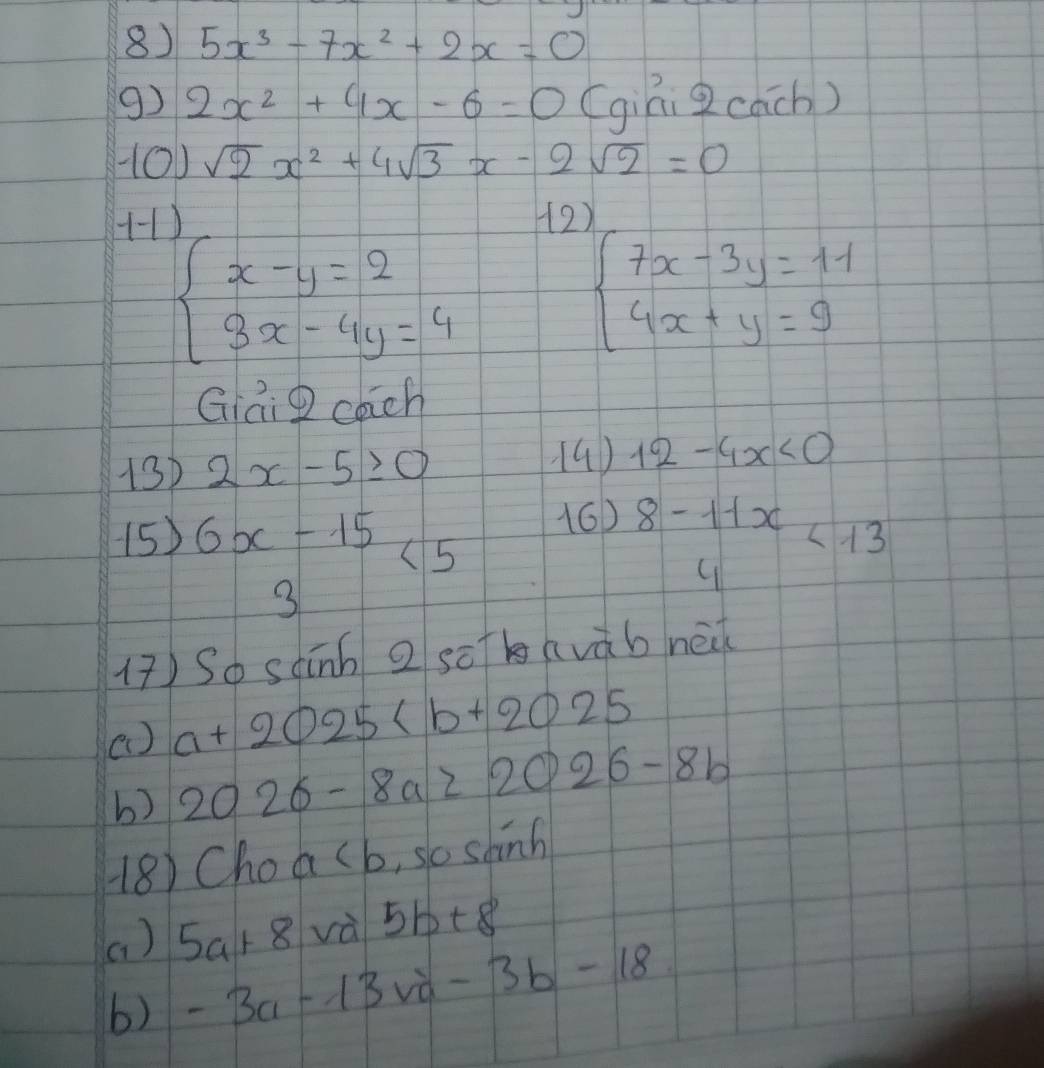 8) 5x³ - 7x² + 2x = 0
9) 2x² + 4x - 6 = 0 (giải 2 cách)
10) √2 x² + 4√3 x - 2√2 = 0
11) 12)
{ x - y = 2 { 7x - 3y = 11
3x - 4y = 4 4x + y = 9
Giải 2 cách
13) 2x - 5 ≥ 0 14) 12 - 4x < 0
15) 6x - 15 < 5 16) 8 - 11x < 13
3 4
17) So sánh 2 số a và b nếu
a) a + 2025 < b + 2025
b) 2026 - 8a ≥ 2026 - 8b
18) Cho a < b, so sánh
a) 5a + 8 và 5b + 8
b) - 3a - 13 và - 3b - 18